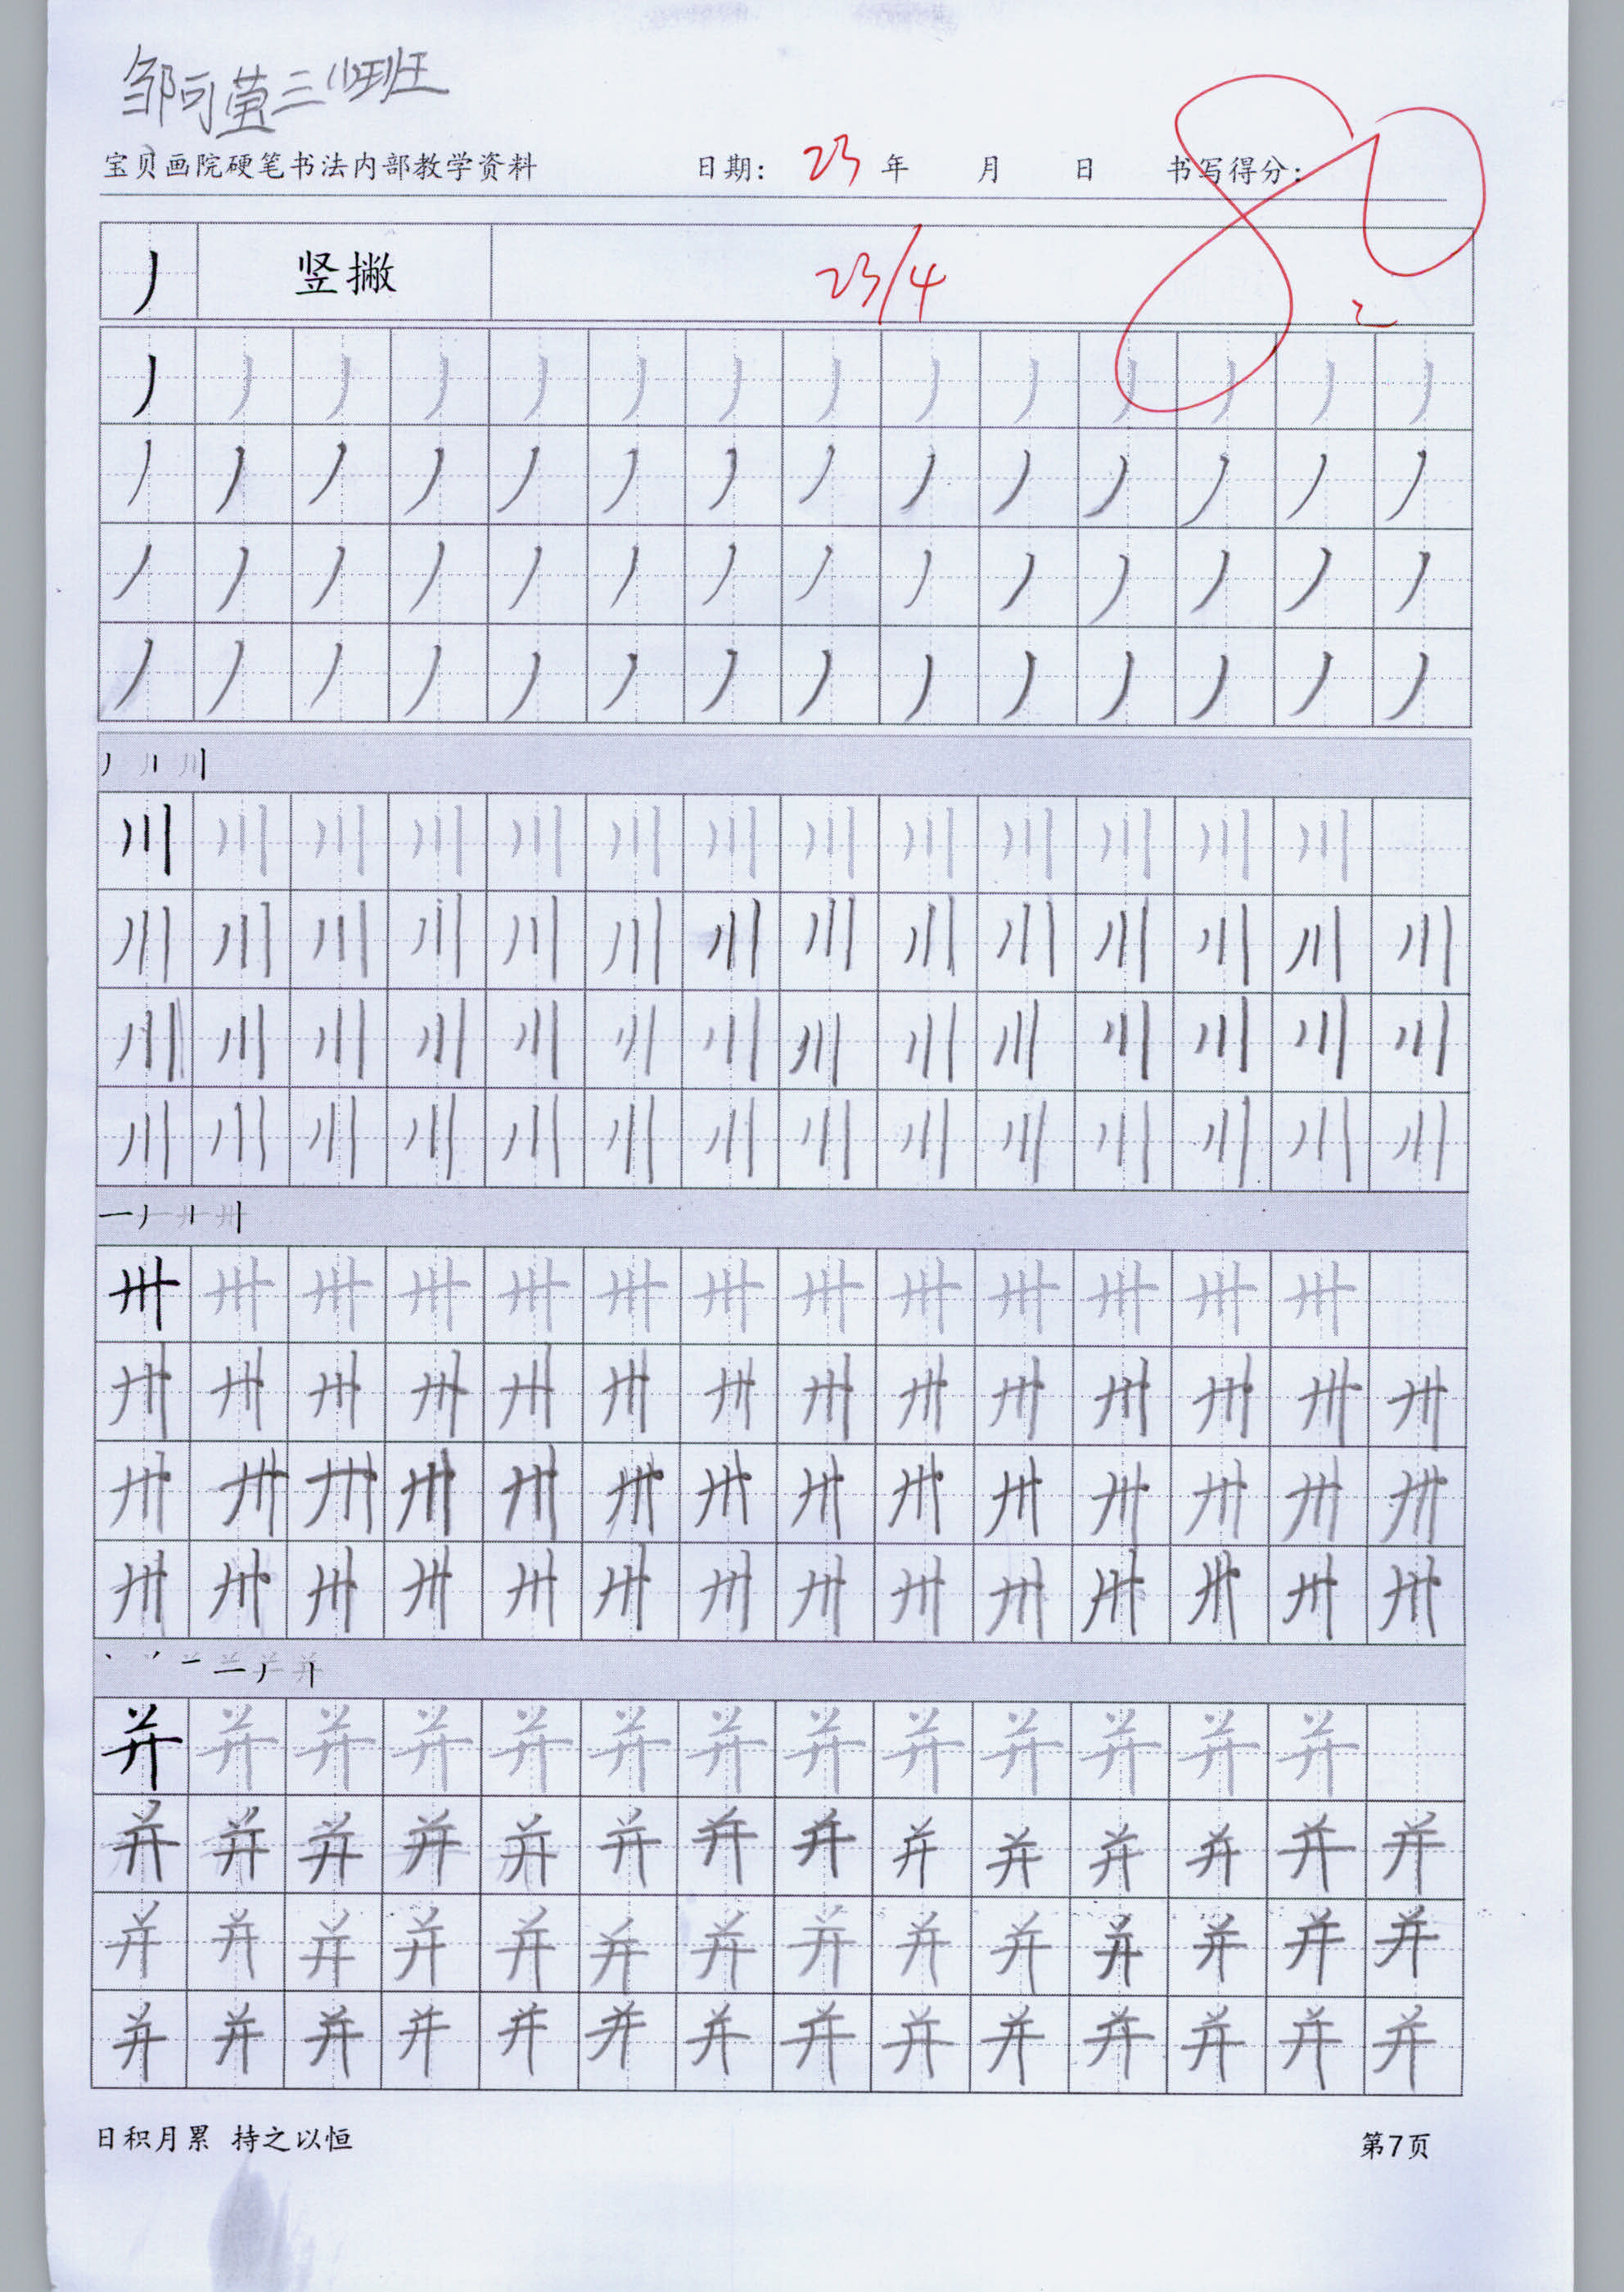 邹可三班
宝贝画院硬笔书法内部教学资料 日期: 23 年 月 日 书写得分: 80
丿 竖撇 23/4
丿 丿 丿 丿 丿 丿 丿 丿 丿 丿 丿 丿 丿 丿
丿 丿 丿 丿 丿 丿 丿 丿 丿 丿 丿 丿 丿 丿
丿 丿 丿 丿 丿 丿 丿 丿 丿 丿 丿 丿 丿 丿
丿 丿 丿 丿 丿 丿 丿 丿 丿 丿 丿 丿 丿 丿
川 川 川 川 川 川 川 川 川 川 川 川 川
川 川 川 川 川 川 川 川 川 川 川 川 川 川
川 川 川 川 川 川 川 川 川 川 川 川 川 川
川 川 川 川 川 川 川 川 川 川 川 川 川 川
卅 卅 卅 卅 卅 卅 卅 卅 卅 卅 卅 卅 卅
卅 卅 卅 卅 卅 卅 卅 卅 卅 卅 卅 卅 卅 卅
卅 卅 卅 卅 卅 卅 卅 卅 卅 卅 卅 卅 卅 卅
卅 卅 卅 卅 卅 卅 卅 卅 卅 卅 卅 卅 卅 卅
并 并 并 并 并 并 并 并 并 并 并 并 并
并 并 并 并 并 并 并 并 并 并 并 并 并 并
并 并 并 并 并 并 并 并 并 并 并 并 并 并
并 并 并 并 并 并 并 并 并 并 并 并 并 并
日积月累 持之以恒 第7页